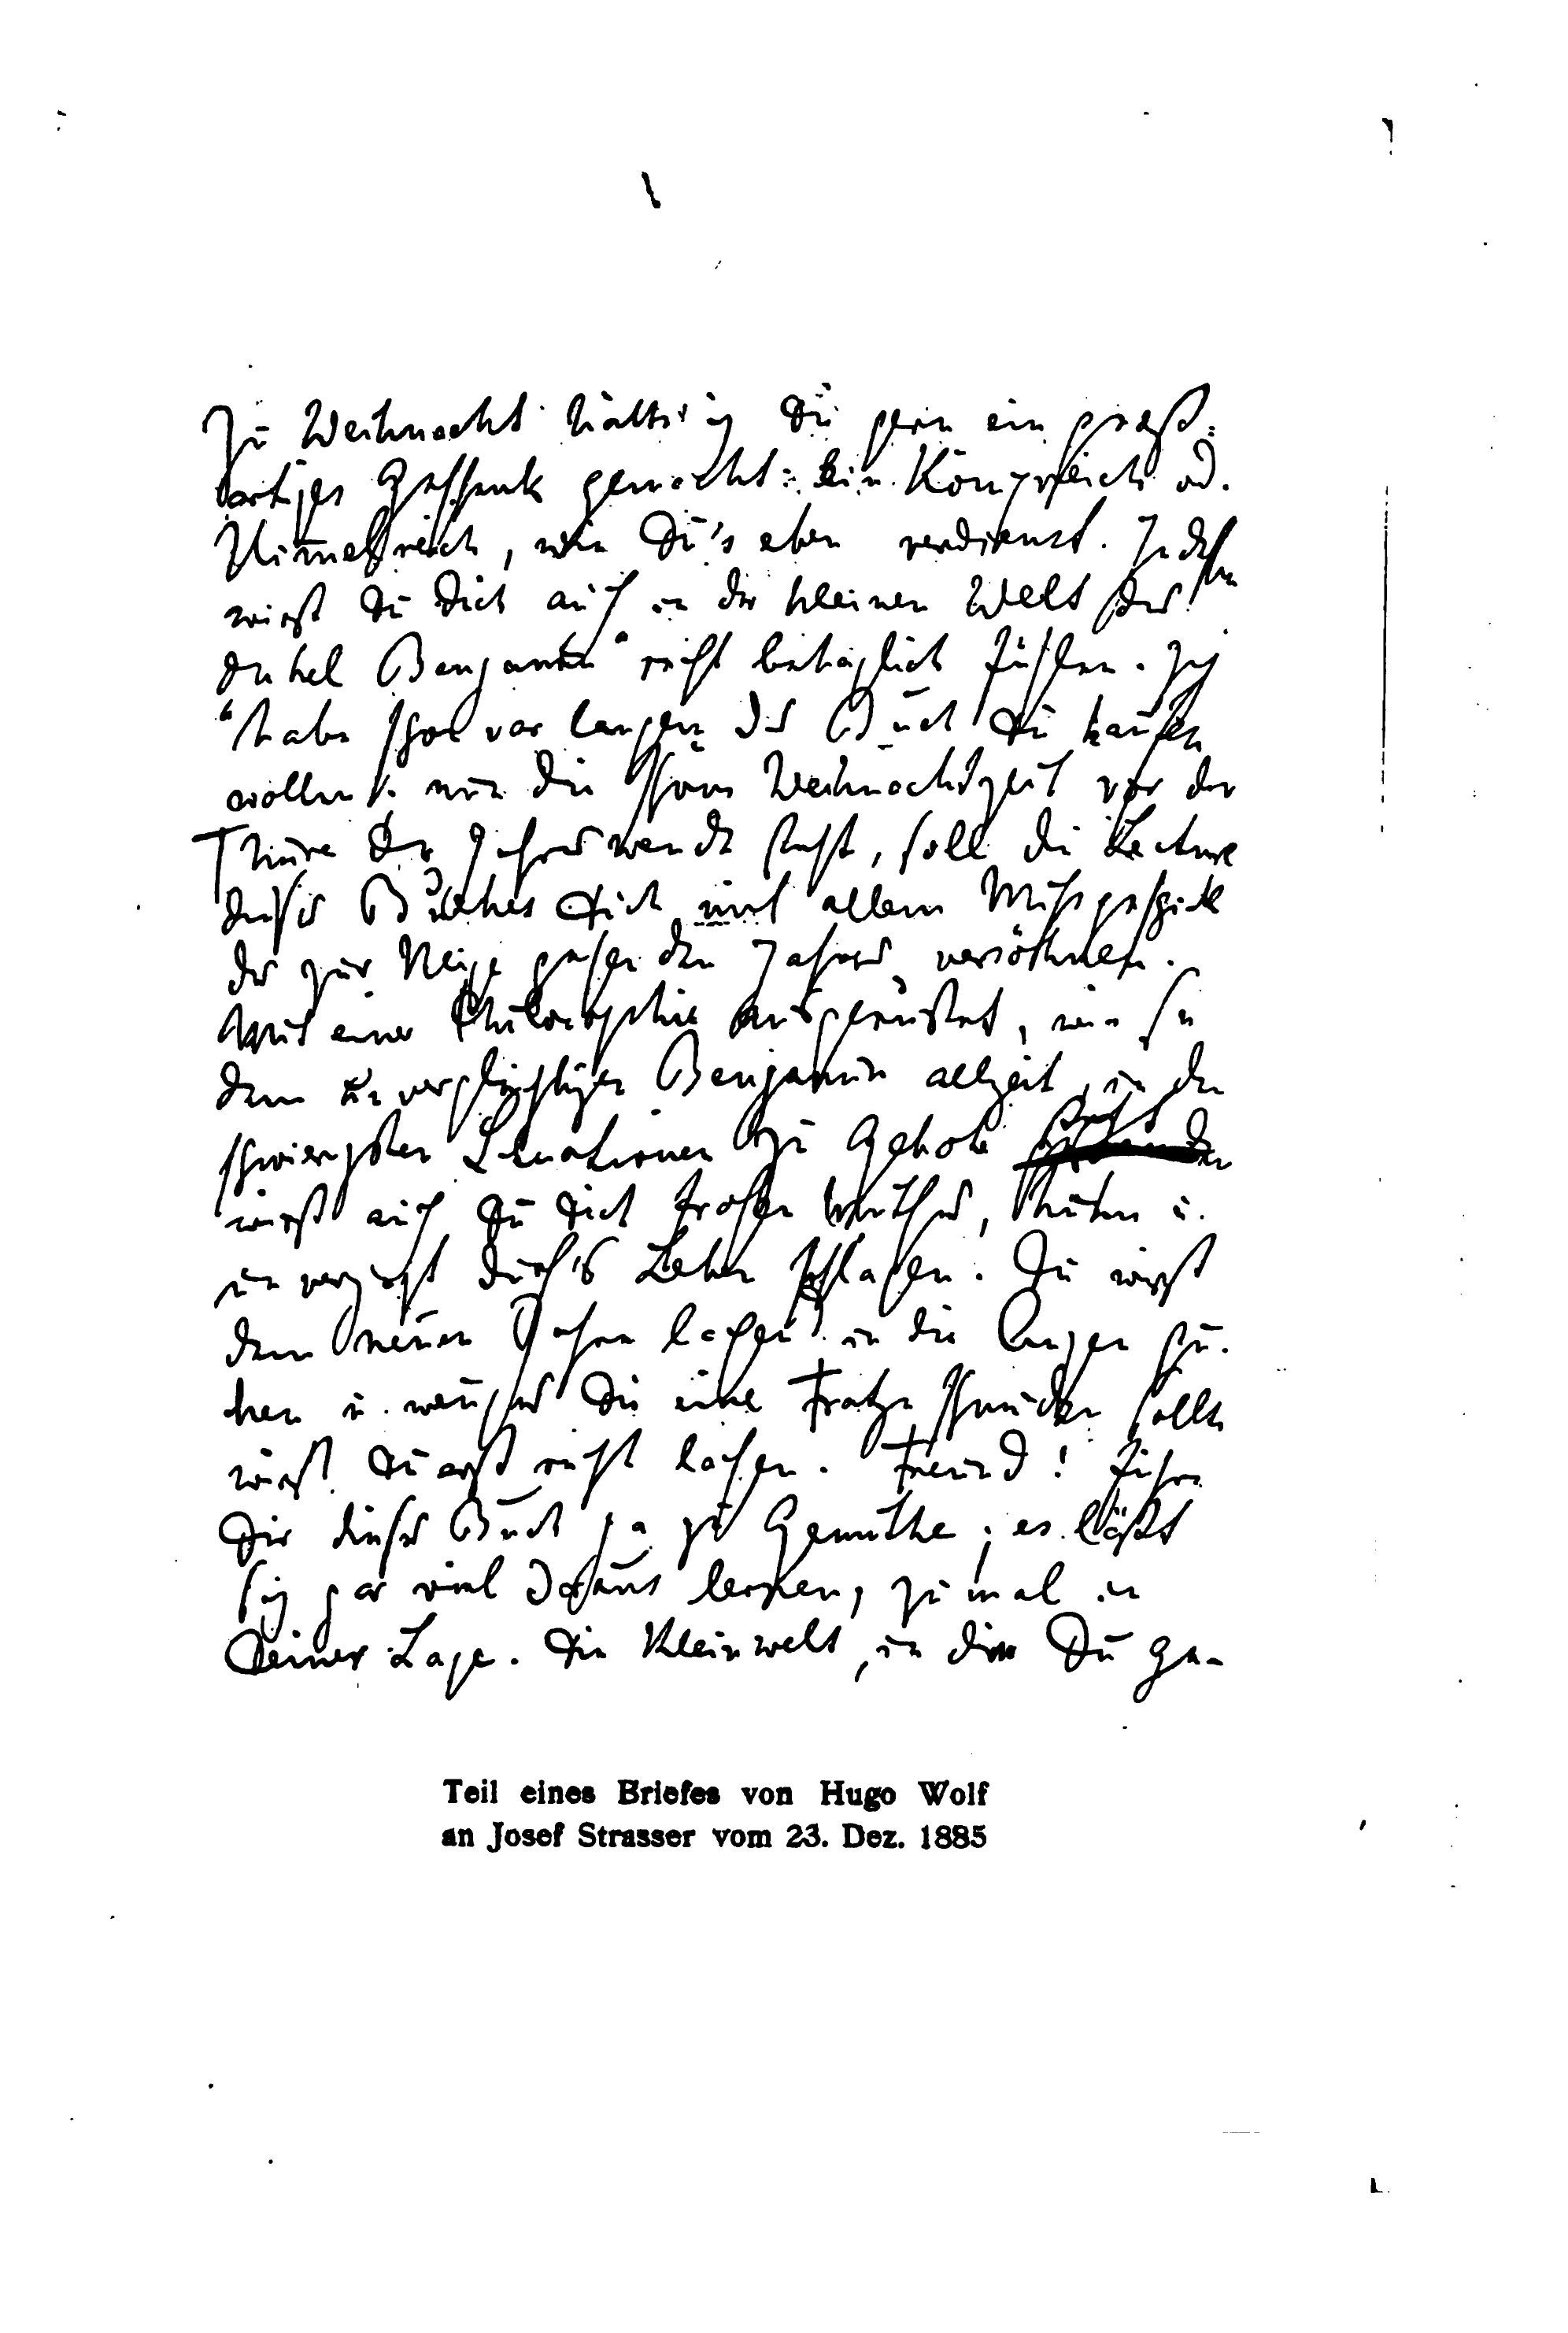 Zu Weihnacht hätt' ich Dir gern ein groß=
artiges Geschenk gemacht: ein Königreich od.
Himmelreich, wie Du's eben verdienst. Indessen
wirst Du Dich auch in der kleinen Welt des
Onkel Benjamin" recht behaglich fühlen. Ich
"habe schon vor langem das Buch Dir kaufen
wollen u. nun die schöne Weihnachtszeit vor der
Thüre der Jahreswende steht, soll die Lecture
dieses Buches Dich mit allem Missgeschick
des zur Neige gehenden Jahres versöhnen.
Mit einer Philosophie ausgerüstet, wie sie
dem unvergleichlichen Benjamin allzeit, in den
schwierigsten Situationen zu Gebote steht
wirst auch Du Dich frohen Muthes, kühn u.
unverzagt durch's Leben schlagen. Du wirst
dem neuen Jahre lachend in die Augen gu=
ken u. wenn es Dir eine Fratze schneiden sollte
wirst Du erst recht lachen. Freund! Führe
Dir dieses Buch ja zu Gemüthe; es läßt
sich gar viel daraus lernen, zumal in
Deiner Lage. Die Kleinwelt, in der Du ge-
Teil eines Briefes von Hugo Wolf
an Josef Strasser vom 23. Dez. 1885